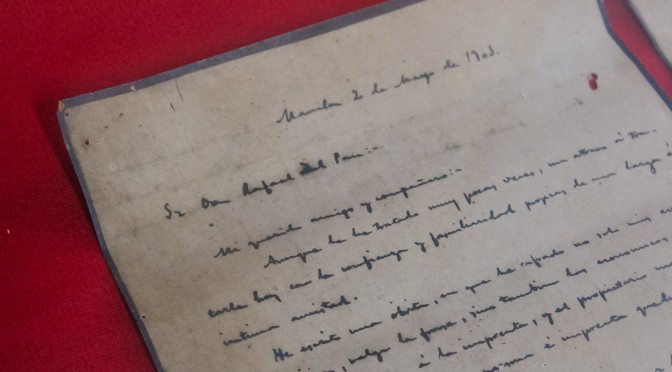 Manila 2 de Mayo de 1903.
Sr Don Rafael del Pan:-
Mi querido amigo y compañero:-
Aunque le he tratado muy pocas veces, me atrevo á
carle hoy con la confianza y familiaridad propias de una larga é
intima amistad.
He escrito una obra, en que he no solo mis
valga la frase, sino tambien los
á la imprenta, y el propietario
é imprenta